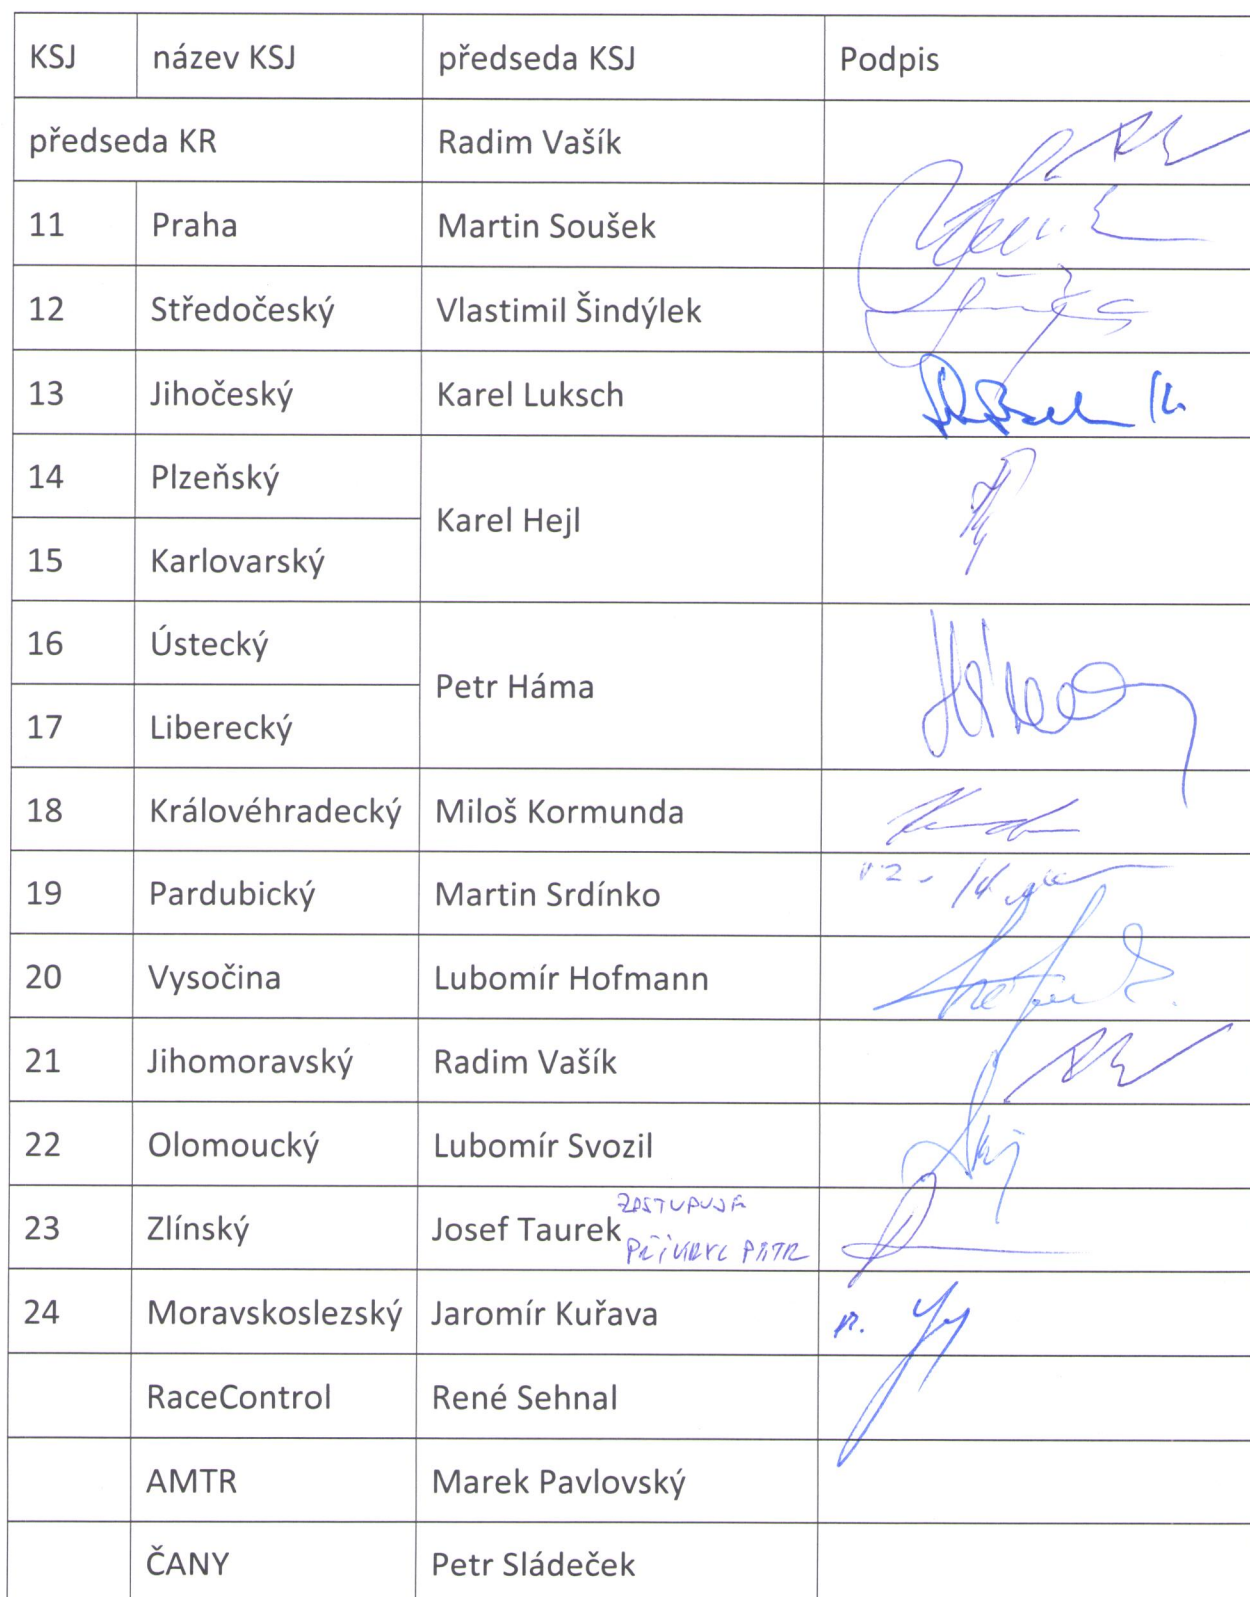 KSJ název KSJ předseda KSJ Podpis
předseda KR Radim Vašík
11 Praha Martin Soušek
12 Středočeský Vlastimil Šindýlek
13 Jihočeský Karel Luksch
14 Plzeňský
Karel Hejl
15 Karlovarský
16 Ústecký
Petr Háma
17 Liberecký
18 Královéhradecký Miloš Kormunda
19 Pardubický Martin Srdínko
20 Vysočina Lubomír Hofmann
21 Jihomoravský Radim Vašík
22 Olomoucký Lubomír Svozil
ZASTUPUJE
23 Zlínský Josef Taurek
PETR
24 Moravskoslezský Jaromír Kuřava
RaceControl René Sehnal
AMTR Marek Pavlovský
ČANY Petr Sládeček